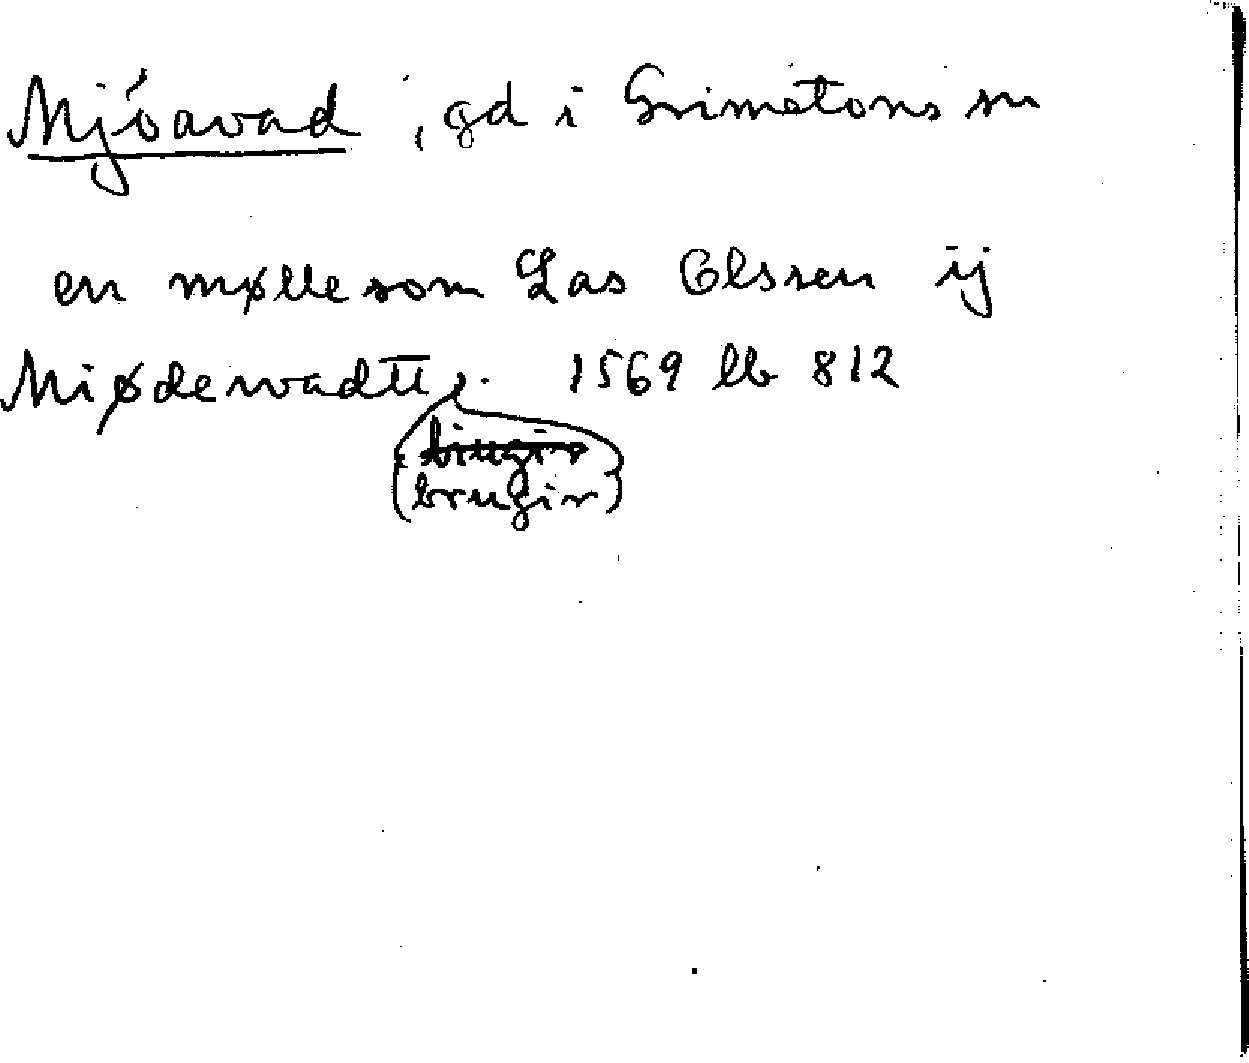 Mjöavad, gd i Grimetons sn
en mølle som Las Olssen ij
Miødewadtt, . 1569 lb 812
(brugir)